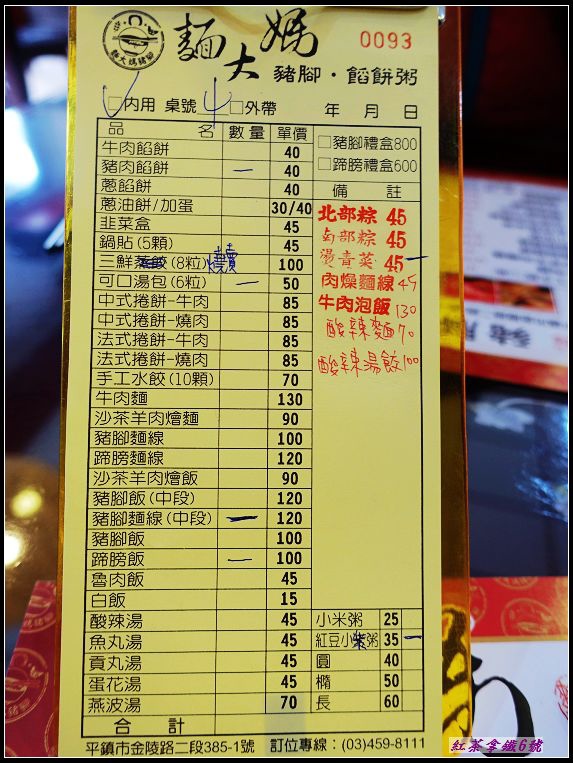 麵大媽
0093
豬腳·餡餅粥
□內用 桌號 4 □外帶 年 月 日
品 名 數量 單價
牛肉餡餅 40
豬肉餡餅 一 40
蔥餡餅 40
蔥油餅/加蛋 30/40
韭菜盒 45
鍋貼(5顆) 45
三鮮蒸餃(8粒) 燒賣 100
可口湯包(6粒) 一 50
中式捲餅-牛肉 85
中式捲餅-燒肉 85
法式捲餅-牛肉 85
法式捲餅-燒肉 85
手工水餃(10顆) 70
牛肉麵 130
沙茶羊肉燴麵 90
豬腳麵線 100
蹄膀麵線 120
沙茶羊肉燴飯 90
豬腳飯(中段) 120
豬腳麵線(中段) 一 120
豬腳飯 100
蹄膀飯 一 100
魯肉飯 45
白飯 15
酸辣湯 45
魚丸湯 45
貢丸湯 45
蛋花湯 45
燕波湯 70
合 計
□豬腳禮盒800
□蹄膀禮盒600
備 註
北部粽 45
南部粽 45
燙青菜 45 一
肉燥麵線 45
牛肉泡飯 130
酸辣麵 70
酸辣湯餃 100
小米粥 25
紅豆小紫粥 35 一
圓 40
橢 50
長 60
平鎮市金陵路二段385-1號 訂位專線：(03)459-8111
紅茶拿鐵6號